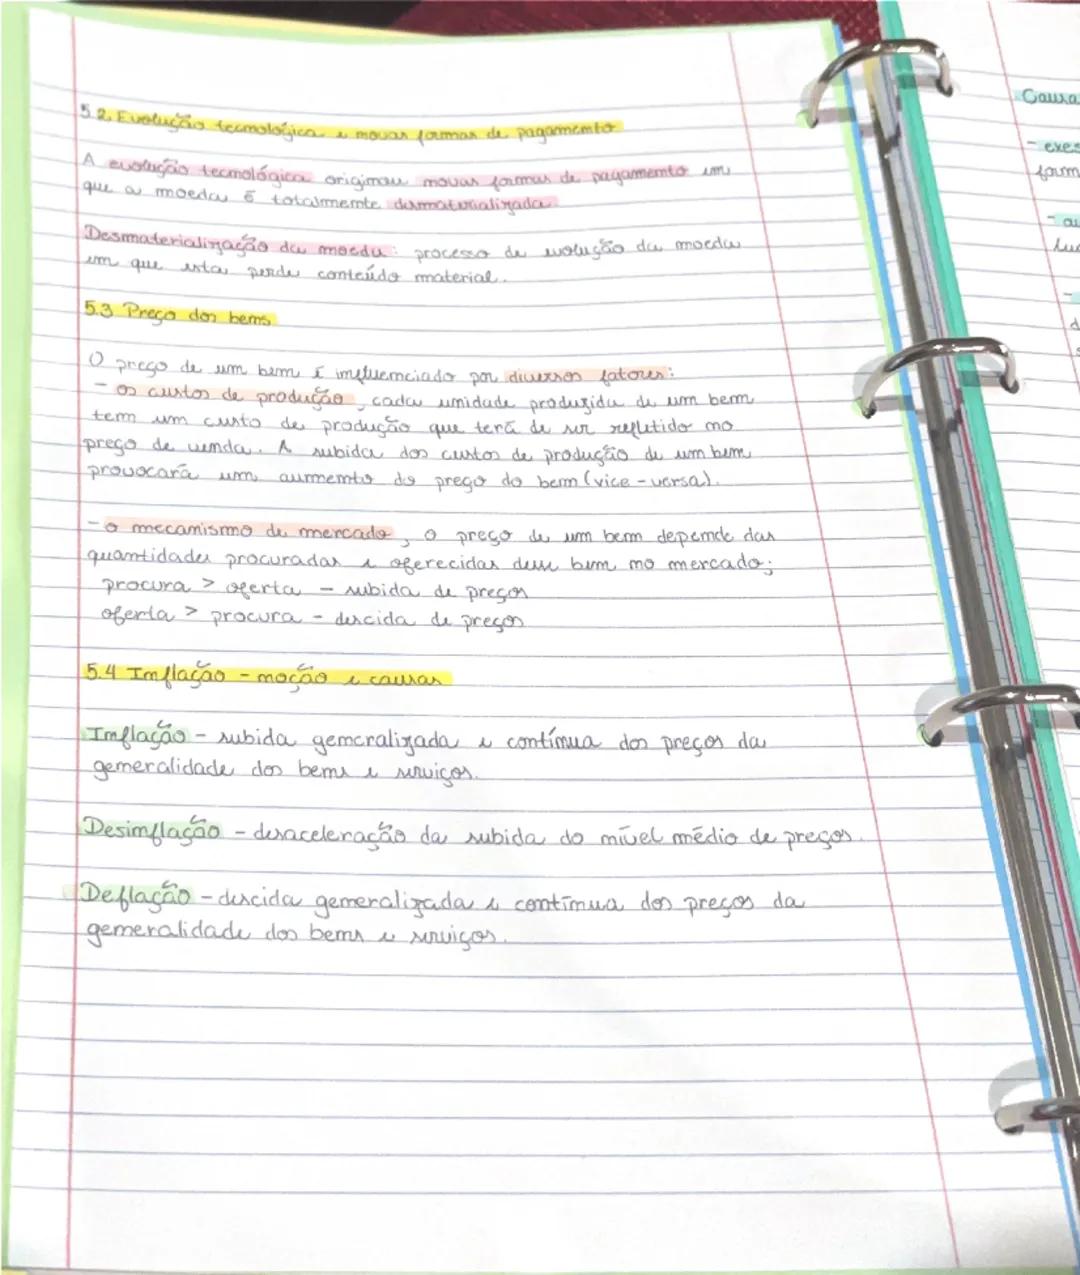 5.2. Evolução tecnológica e novas formas de pagamento
A evolução tecnológica originou novas formas de pagamento em
que a moeda é totalmente desmaterializada.
Desmaterialização da moeda: processo de evolução da moeda
em que esta perde conteúdo material.
5.3 Preço dos bens
O preço de um bem é influenciado por diversos fatores:
- os custos de produção, cada unidade produzida de um bem
tem um custo de produção que terá de ser refletido no
preço de venda. A subida dos custos de produção de um bem
provocará um aumento do preço do bem (vice-versa).
- o mecanismo de mercado, o preço de um bem depende das
quantidades procuradas e oferecidas desse bem no mercado;
procura > oferta - subida de preços
oferta > procura - descida de preços
5.4 Inflação - noção e causas
Inflação - subida generalizada e contínua dos preços da
generalidade dos bens e serviços.
Desinflação - desaceleração da subida do nível médio de preços.
Deflação - descida generalizada e contínua dos preços da
generalidade dos bens e serviços.
Causa